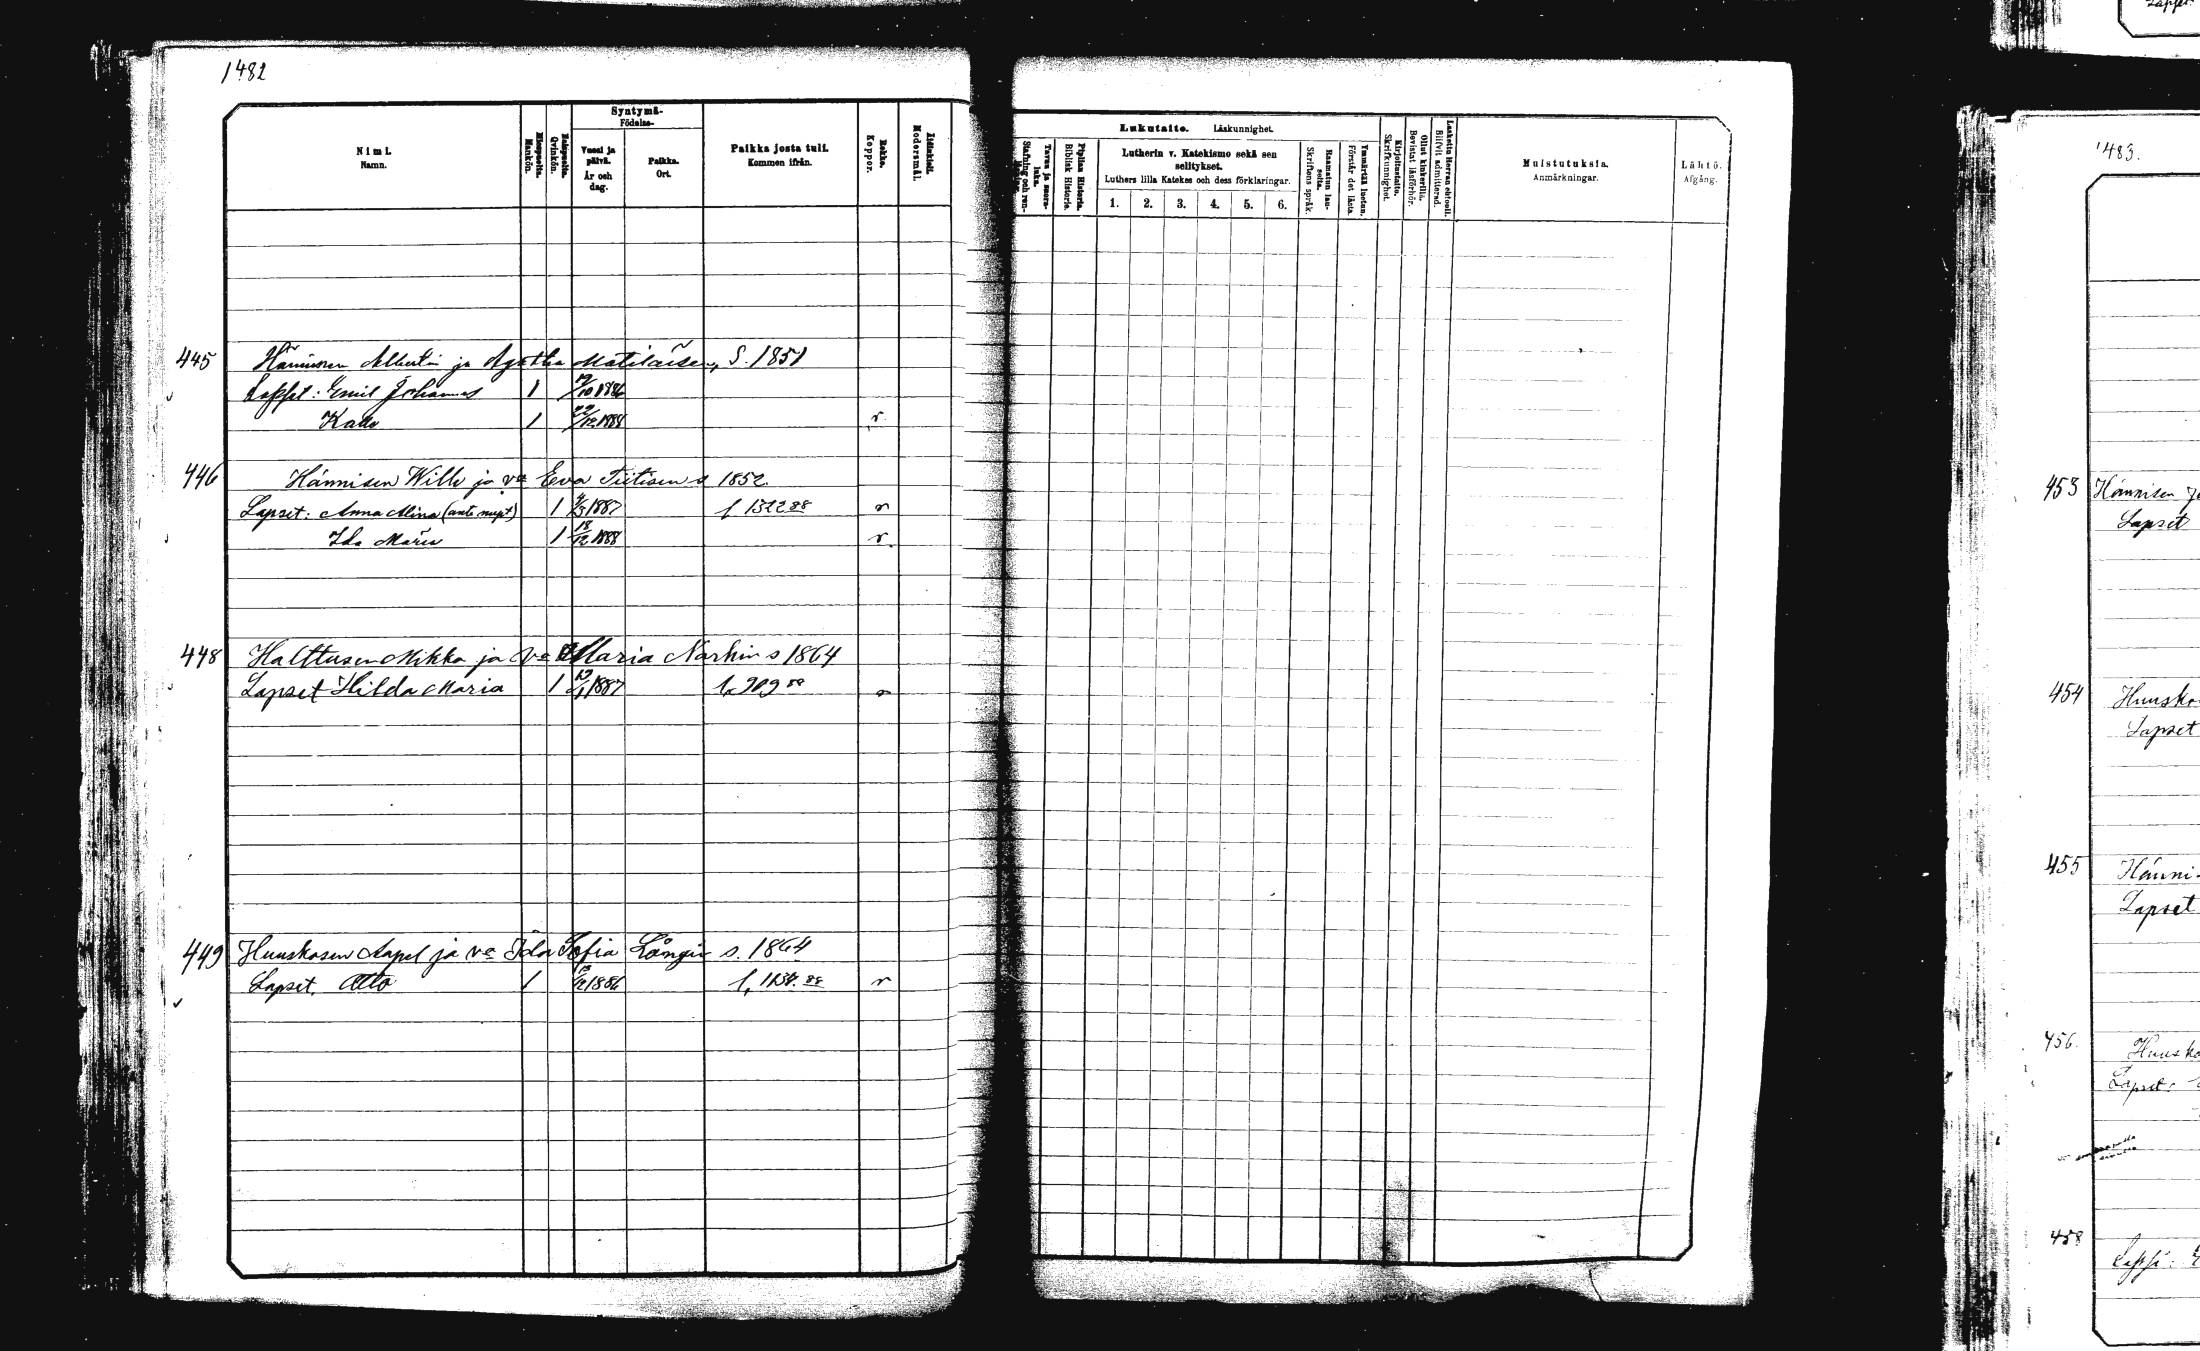 1482
Nimi.
Namn.
Miespuolia.
Mankön.
Vaimopuolia.
Qvinkön.
Syntymä-
Födelse-
Vuosi ja päivä.
År och dag.
Paikka.
Ort.
Paikka josta tuli.
Kommen ifrån.
Rokko.
Koppor.
Äidinkieli.
Modersmål.
445 Hännisen Albertin ja Agatha Matilaisen, S. 1851
Lapset: Emil Johannes 1 /10 1886
Kalle 1 22/12 1888 r
446 Hännisen Wille ja vo Eva Tiitisen s 1852.
Lapset: Anna Alina (ante nupt) 1 4/3 1887 l 1322 88 r
Ida Maria 1 18/12 1888 r.
448 Halttusen Mikko ja vo Maria Narhin s 1864
Lapset Hilda Maria 1 /1 1887 l. 909 88 r
449 Huuskosen Aapel ja vo Ida Sofia Långin s. 1864
Lapset. Otto 1 /12 1886 l, 88 r
Lukutaito. Läskunnighet.
Tavaa ja
Stafning och
Piplian Historia.
Biblisk Historia.
Lutherin v. Katekismo sekä sen selitykset.
Luthers lilla Katekes och dess förklaringar.
1. 2. 3. 4. 5. 6.
Raamatun lauseita.
Skriftens språk.
Ymmärtää luetun.
Förstår det lästa.
Kirjoitustaito.
Skrifkunnighet.
Ollut kinkerillä.
Bevistat läsförhör.
Laskettu Herran ehtooll.
Blifvit admitterad.
Muistutuksia.
Anmärkningar.
Lähtö.
Afgång.
1483.
453 Hännisen
Lapset
454
Lapset
455 Hänni-
Lapset
456.
Lapset:
458